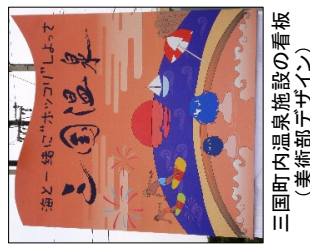 海と一緒に"ホッコリ"しよっさ
三国温泉
三国町内温泉施設の看板
（美術部デザイン）